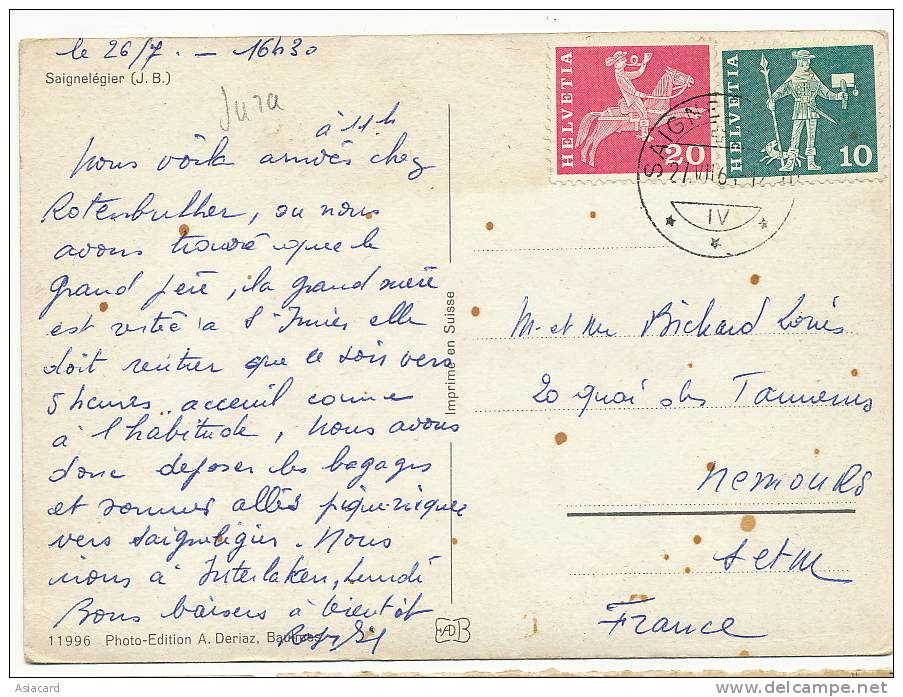 le 26/7. - 16h30
Saignelégier (J. B.)
Jura
à 11h
Nous voila arrivés chez
Rotenbulher, ou nous
avons trouvé que le
grand père, la grand mère
est restée à St Imier elle
doit rentrer que ce soir vers
5 heures. acceuil comme
à l'habitude, nous avons
donc deposer les bagages
et sommes allés pique-niquer
vers Saignelégier. Nous
irons à Interlaken, Lundi
Bons baisers à bientôt
11996 Photo-Edition A. Deriaz, Baulmes
Imprimé en Suisse
EAD B
HELVETIA
20
HELVETIA
10
SAIGN
27.VII.6
IV
M. et Me Bichard Loüis
20 quai des Tanneries
Nemours
S et M
France
Asiacard
www.delcampe.net